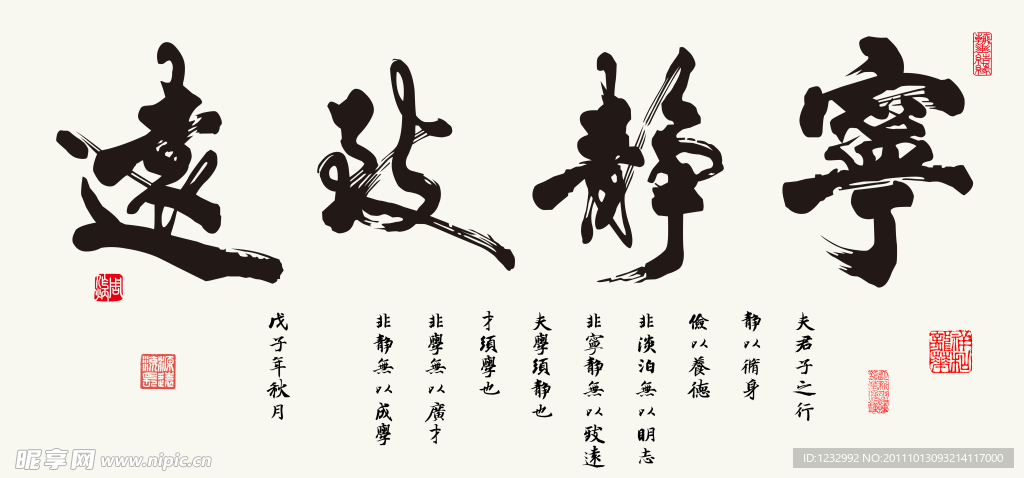 寧靜致遠
夫君子之行
靜以脩身
儉以養德
非淡泊無以明志
非寧靜無以致遠
夫學須靜也
才須學也
非學無以廣才
非靜無以成學
戊子年秋月
昵享网 www.nipic.cn
ID:1232992 NO:20111013093214117000